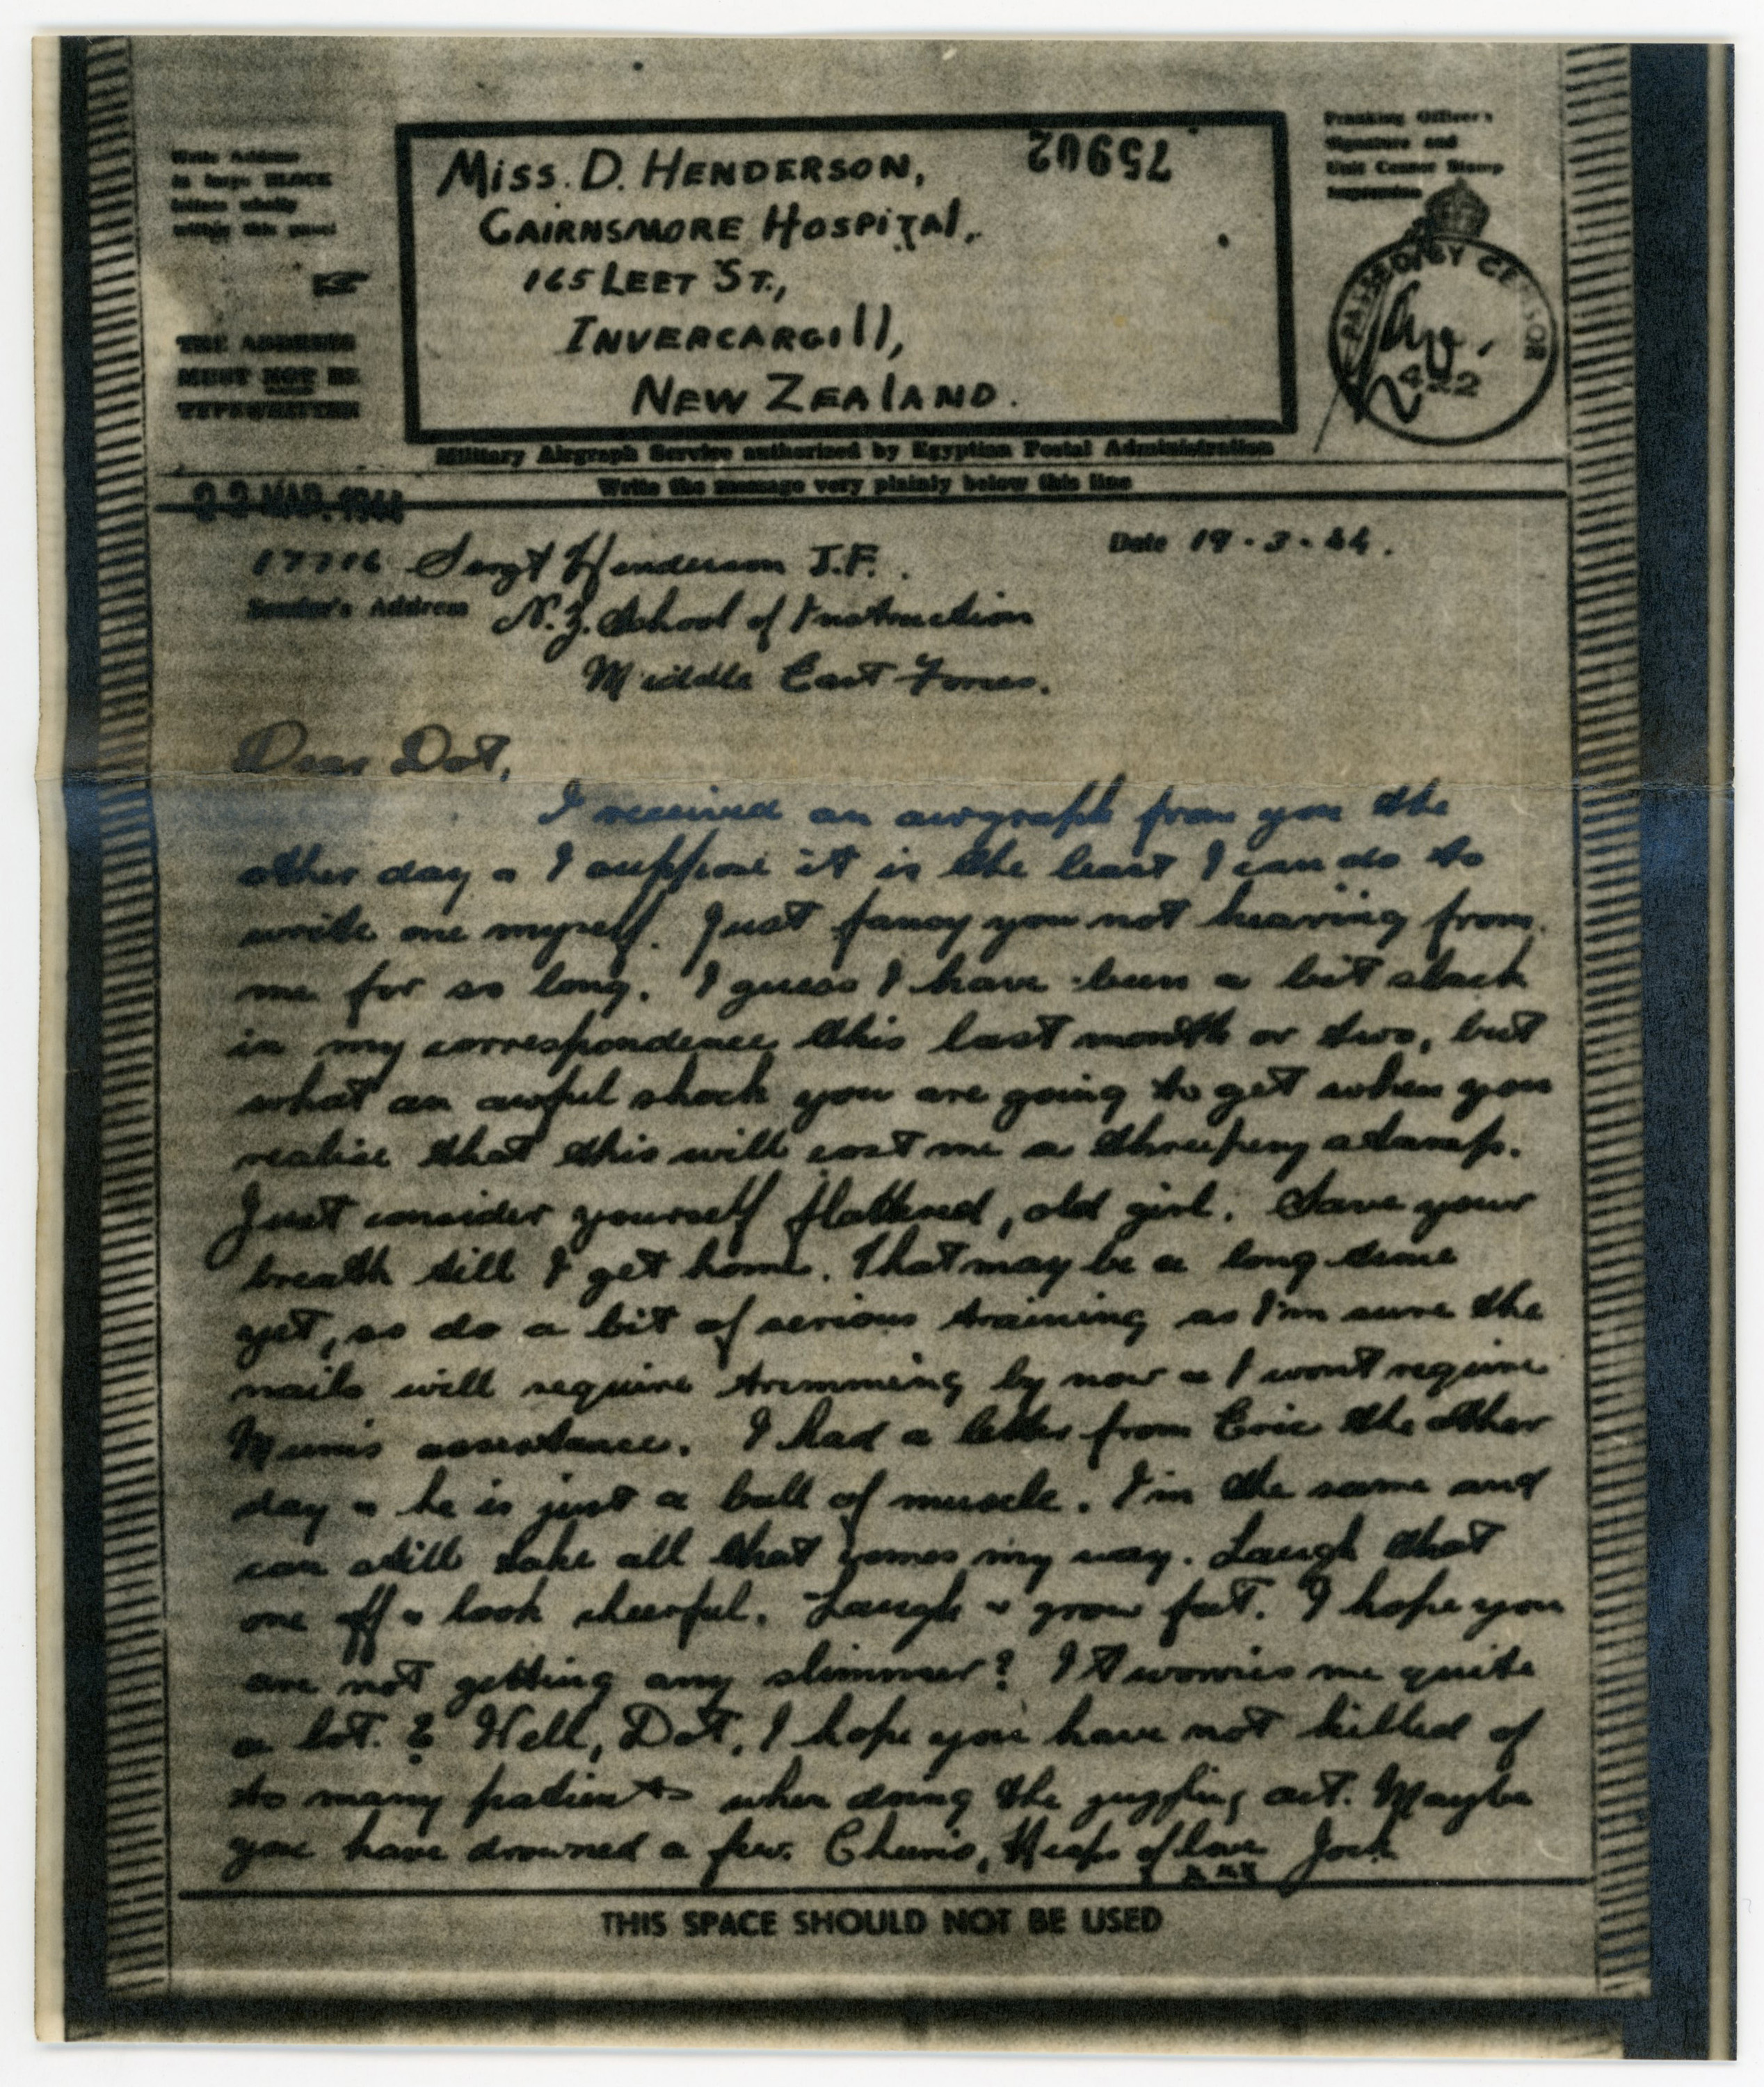 Write Address
in large BLOCK
letters wholly
within this panel
THE ADDRESS
MUST NOT BE
TYPEWRITTEN
75902
MISS. D. HENDERSON,
CAIRNSMORE HOSPITAL,
165 LEET ST.,
INVERCARGILL,
NEW ZEALAND.
Franking Officer's
Signature and
Unit Censor Stamp
Impression
PASSED BY CENSOR
Military Airgraph Service authorized by Egyptian Postal Administration
Write the message very plainly below this line
MAR. 1944
Date 19.3.44.
17716 Sergt Henderson J.F.
Sender's Address N.Z. School of Instruction
Middle East Forces.
Dear Dot,
I received an airgraph from you the
other day & I suppose it is the least I can do to
write one myself. Just fancy you not hearing from
me for so long. I guess I have been a bit slack
in my correspondence this last month or two, but
what an awful shock you are going to get when you
realise that this will cost me a threepeny stamp.
Just consider yourself flattered, old girl. Save your
breath till I get home. That may be a long time
yet, so do a bit of serious training as I'm sure the
nails will require trimming by now & I wont require
Mum's assistance. I had a letter from Eric the other
day & he is just a ball of muscle. I'm the same and
can still take all that comes my way. Laugh that
one off & look cheerful. Laugh & grow fat. I hope you
are not getting any slimmer? It worries me quite
a lot. ? Well, Dot, I hope you have not killed of
to many patients when doing the juggling act. Maybe
you have drowned a few. Cheerio, Heaps of love Jock
xxx
THIS SPACE SHOULD NOT BE USED